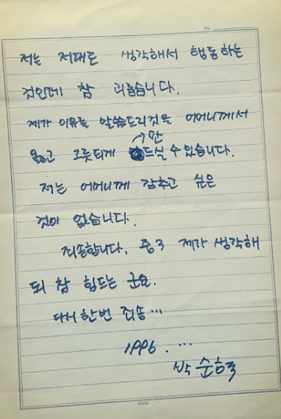 저는 저대로 생각해서 행동하는
것인데 참 괴롭습니다.
제가 이유를 말씀드리것은 어머니께서
옳고 그릇되게 만드실 수 있습니다.
저는 어머니께 감추고 싶은
것이 없습니다.
죄송합니다. 중3 제가 생각해
되 참 힘드는 군요.
다시 한번 죄송...
1996. ...
순